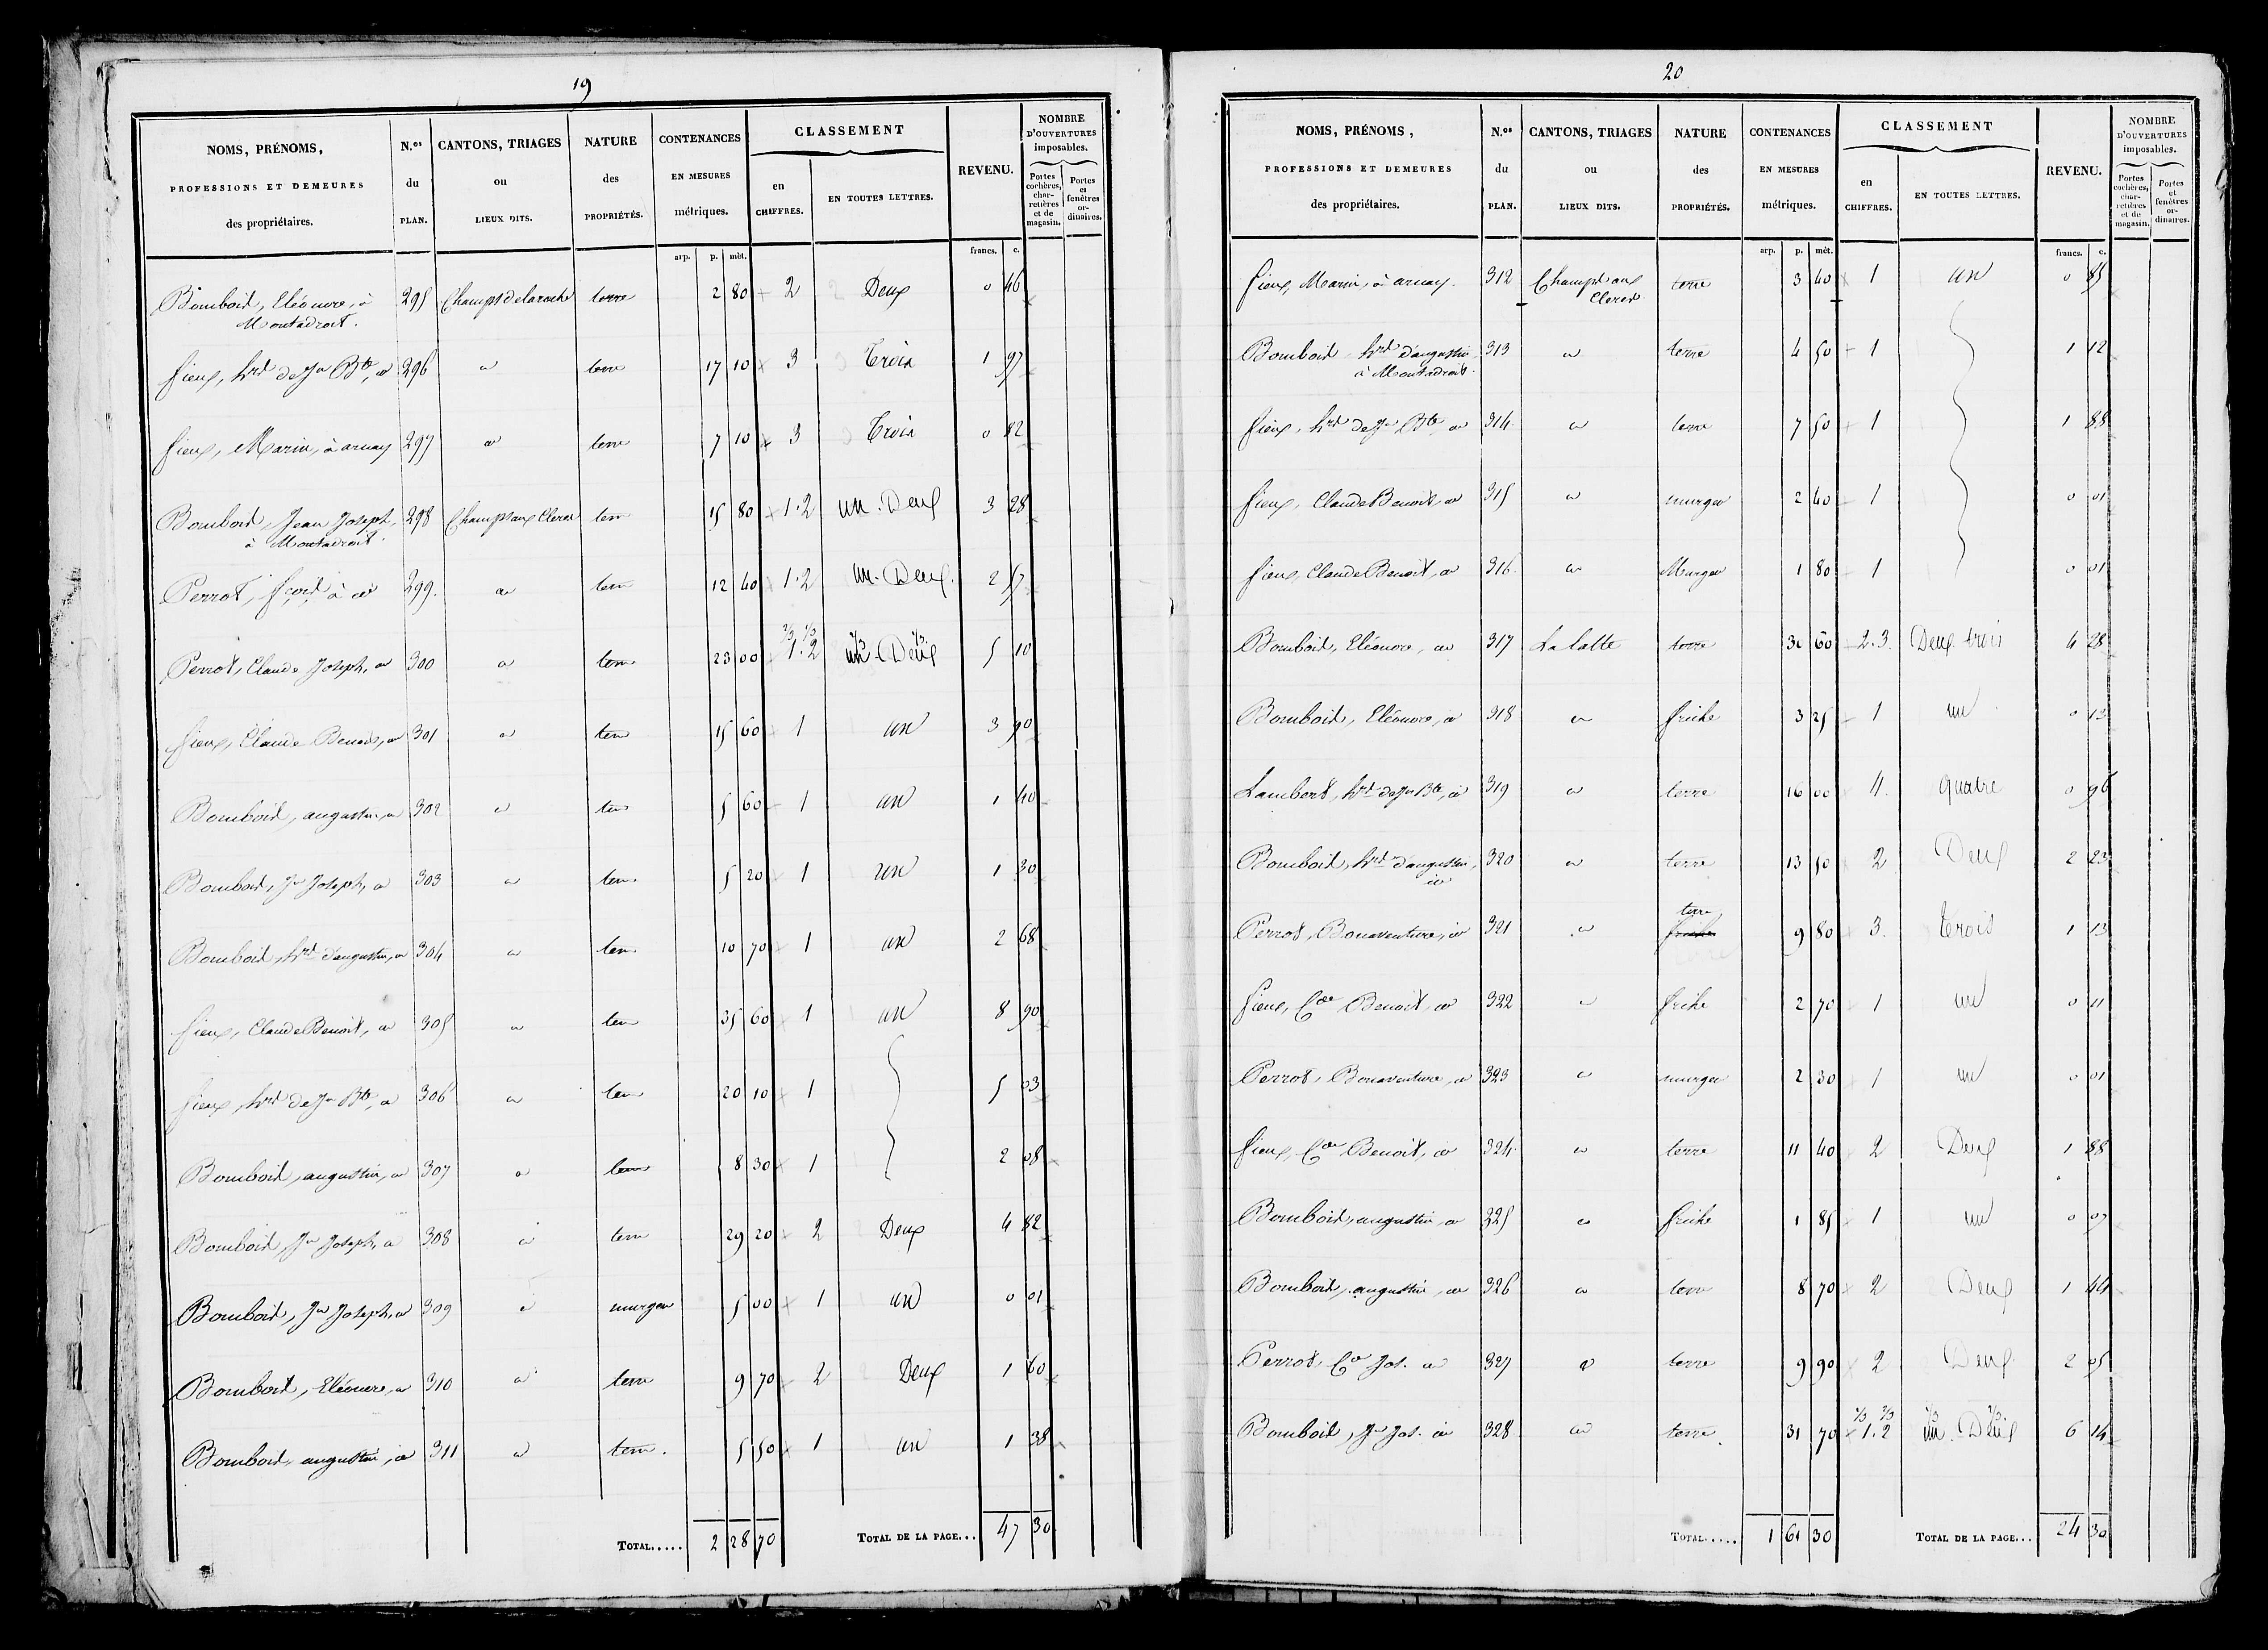 19
NOMS, PRÉNOMS,
PROFESSIONS ET DEMEURES
des propriétaires.
N.os
du
PLAN.
CANTONS, TRIAGES
ou
LIEUX DITS.
NATURE
des
PROPRIÉTÉS.
CONTENANCES
EN MESURES
métriques.
CLASSEMENT
en
CHIFFRES.
EN TOUTES LETTRES.
REVENU.
NOMBRE
D'OUVERTURES
imposables.
Portes
cochères,
char-
retières
et de
magasin.
Portes
et
fenêtres
or-
dinaires.
arp. p. mèt. francs. c.
Bomboid, Eléonore, à 295 Champs de laroche terre 2 80 2 Deux 0 46
Montadroit.
fieux, hrs de Jn Bte, id 296 id terre 17 10 3 Trois 1 97
fieux, Marin, à arnay 297 id terre 7 10 3 Trois 0 82
Bomboid, Jean Joseph, 298 Champs aux Clercs terre 15 80 1.2 un. Deux 3 28
à Montadroit.
Perrot, fçois à id 299. id terre 12 40 1.2 un. Deux. 2 57
Perrot, Claude Joseph, id 300 id terre 23 00 2/3 1/3 1.2 2/3 1/3 un. Deux 5 10
fieux, Claude Benoit, id 301 id terre 15 60 1 un 3 90
Bomboid, augustin, id 302 id terre 5 60 1 un 1 40
Bomboid, Jn Joseph, id 303 id terre 5 20 1 un 1 30
Bomboid, hrs d'augustin, id 304 id terre 10 70 1 un 2 68
fieux, Claude Benoit, id 305 id terre 35 60 1 un 8 90
fieux, hrs de Jn Bte, id 306 id terre 20 10 1 5 03
Bomboid, augustin, id 307 id terre 8 30 1 2 08
Bomboid, Jn Joseph, id 308 id terre 29 20 2 Deux 4 82
Bomboid, Jn Joseph, id 309 id murger 5 00 1 un 0 01
Bomboid, Eléonore, id 310 id terre 9 70 2 Deux 1 60
Bomboid, augustin, id 311 id terre. 5 50 1 un 1 38
TOTAL..... 2 28 70 TOTAL DE LA PAGE... 47 30
20
NOMS, PRÉNOMS,
PROFESSIONS ET DEMEURES
des propriétaires.
N.os
du
PLAN.
CANTONS, TRIAGES
ou
LIEUX DITS.
NATURE
des
PROPRIÉTÉS.
CONTENANCES
EN MESURES
métriques.
CLASSEMENT
en
CHIFFRES.
EN TOUTES LETTRES.
REVENU.
NOMBRE
D'OUVERTURES
imposables.
Portes
cochères,
char-
retières
et de
magasin.
Portes
et
fenêtres
or-
dinaires.
arp. p. mèt. francs. c.
fieux, Marin, à arnay. 312 Champs aux terre 3 40 1 un 0 85
Clercs
Bomboid hrs d'augustin 313 id terre 4 50 1 1 12
à Montadroit.
fieux, hrs de Jn Bte, id 314 id terre 7 50 1 1 88
fieux, Claude Benoit, id 315 id murger 2 40 1 0 01
fieux, Claude Benoit, id 316 id Murger 1 80 1 0 01
Bomboid, Eléonore, id 317 La latte terre 30 60 2.3. Deux. trois 4 28
Bomboid, Eléonore, id 318 id friche 3 25 1 un 0 13
Lambert, hrs de Jn Bte, id 319 id terre 16 00 4. quatre 0 96
Bomboid, hrs d'augustin, 320 id terre 13 50 2 Deux 2 23
id
terre
Perrot, Bonaventure, id 321 id friche 9 80 3. trois 1 13
fieux, Cde Benoit, id 322 id friche 2 70 1 un 0 11
Perrot, Bonaventure, id 323 id murger 2 30 1 un 0 01
fieux, Cde Benoit, id 324 id terre 11 40 2 Deux 1 88
Bomboid, augustin, id 325 id friche 1 85 1 un 0 07
Bomboid, augustin, id 326 id terre 8 70 2 Deux 1 44
Perrot, Cde Jos. id 327 id terre 9 90 2 Deux 2 05
Bomboid, Jn Jos. id 328 id terre 31 70 1/3 2/3 1.2 1/3 2/3 un. Deux 6 14
TOTAL..... 1 61 30 TOTAL DE LA PAGE... 24 30